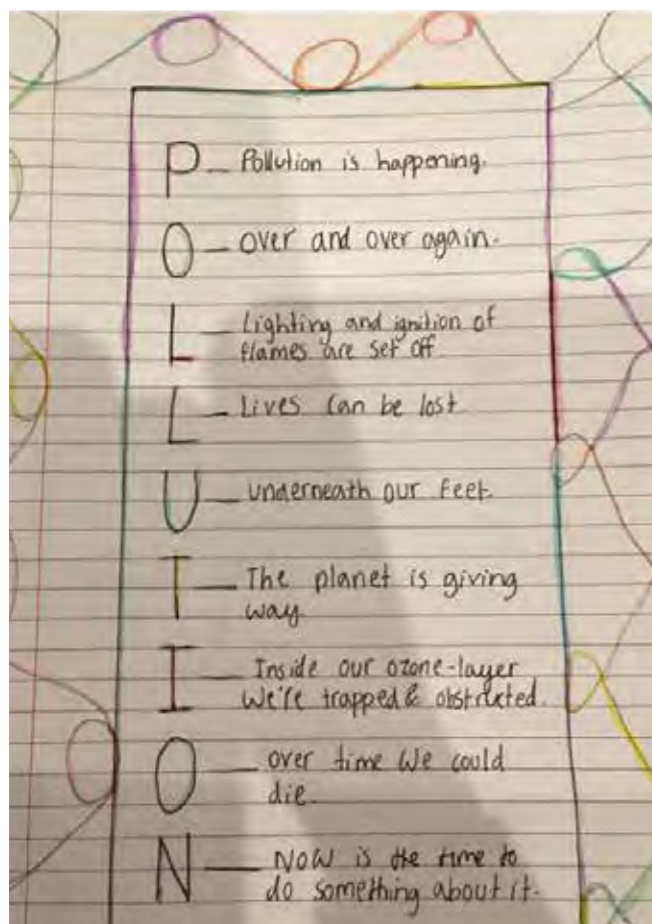 P — Pollution is happening.
O — over and over again.
L — Lighting and ignition of
flames are set off
L — Lives can be lost
U — underneath our feet.
T — The planet is giving
way.
I — Inside our ozone-layer
We're trapped & obstructed.
O — over time we could
die.
N — Now is the time to
do something about it.